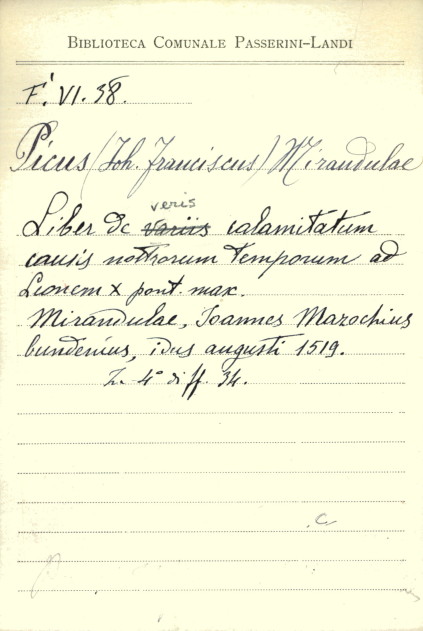 BIBLIOTECA COMUNALE PASSERINI-LANDI
F.' VI. 38.
Picus (Joh. Franciscus) Mirandulae
veris
Liber de variis calamitatum
causis nostrorum temporum ad
Leonem X pont. max.
Mirandulae, Joannes Mazochius
bundenius, idus augusti 1519.
4° di ff. 34.
c